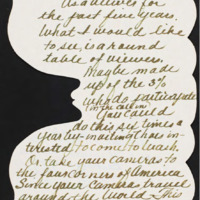 as a viewer for
the past five years.
What I would like
to see, is a round
table of viewers.
Maybe made
up of the 3%
who do participate
in the call in
You could
do this six times a
year too mailing those in-
terested to come to Wash.
Or, take your cameras to
the four corners of America
Since your cameras travel
around the World. This